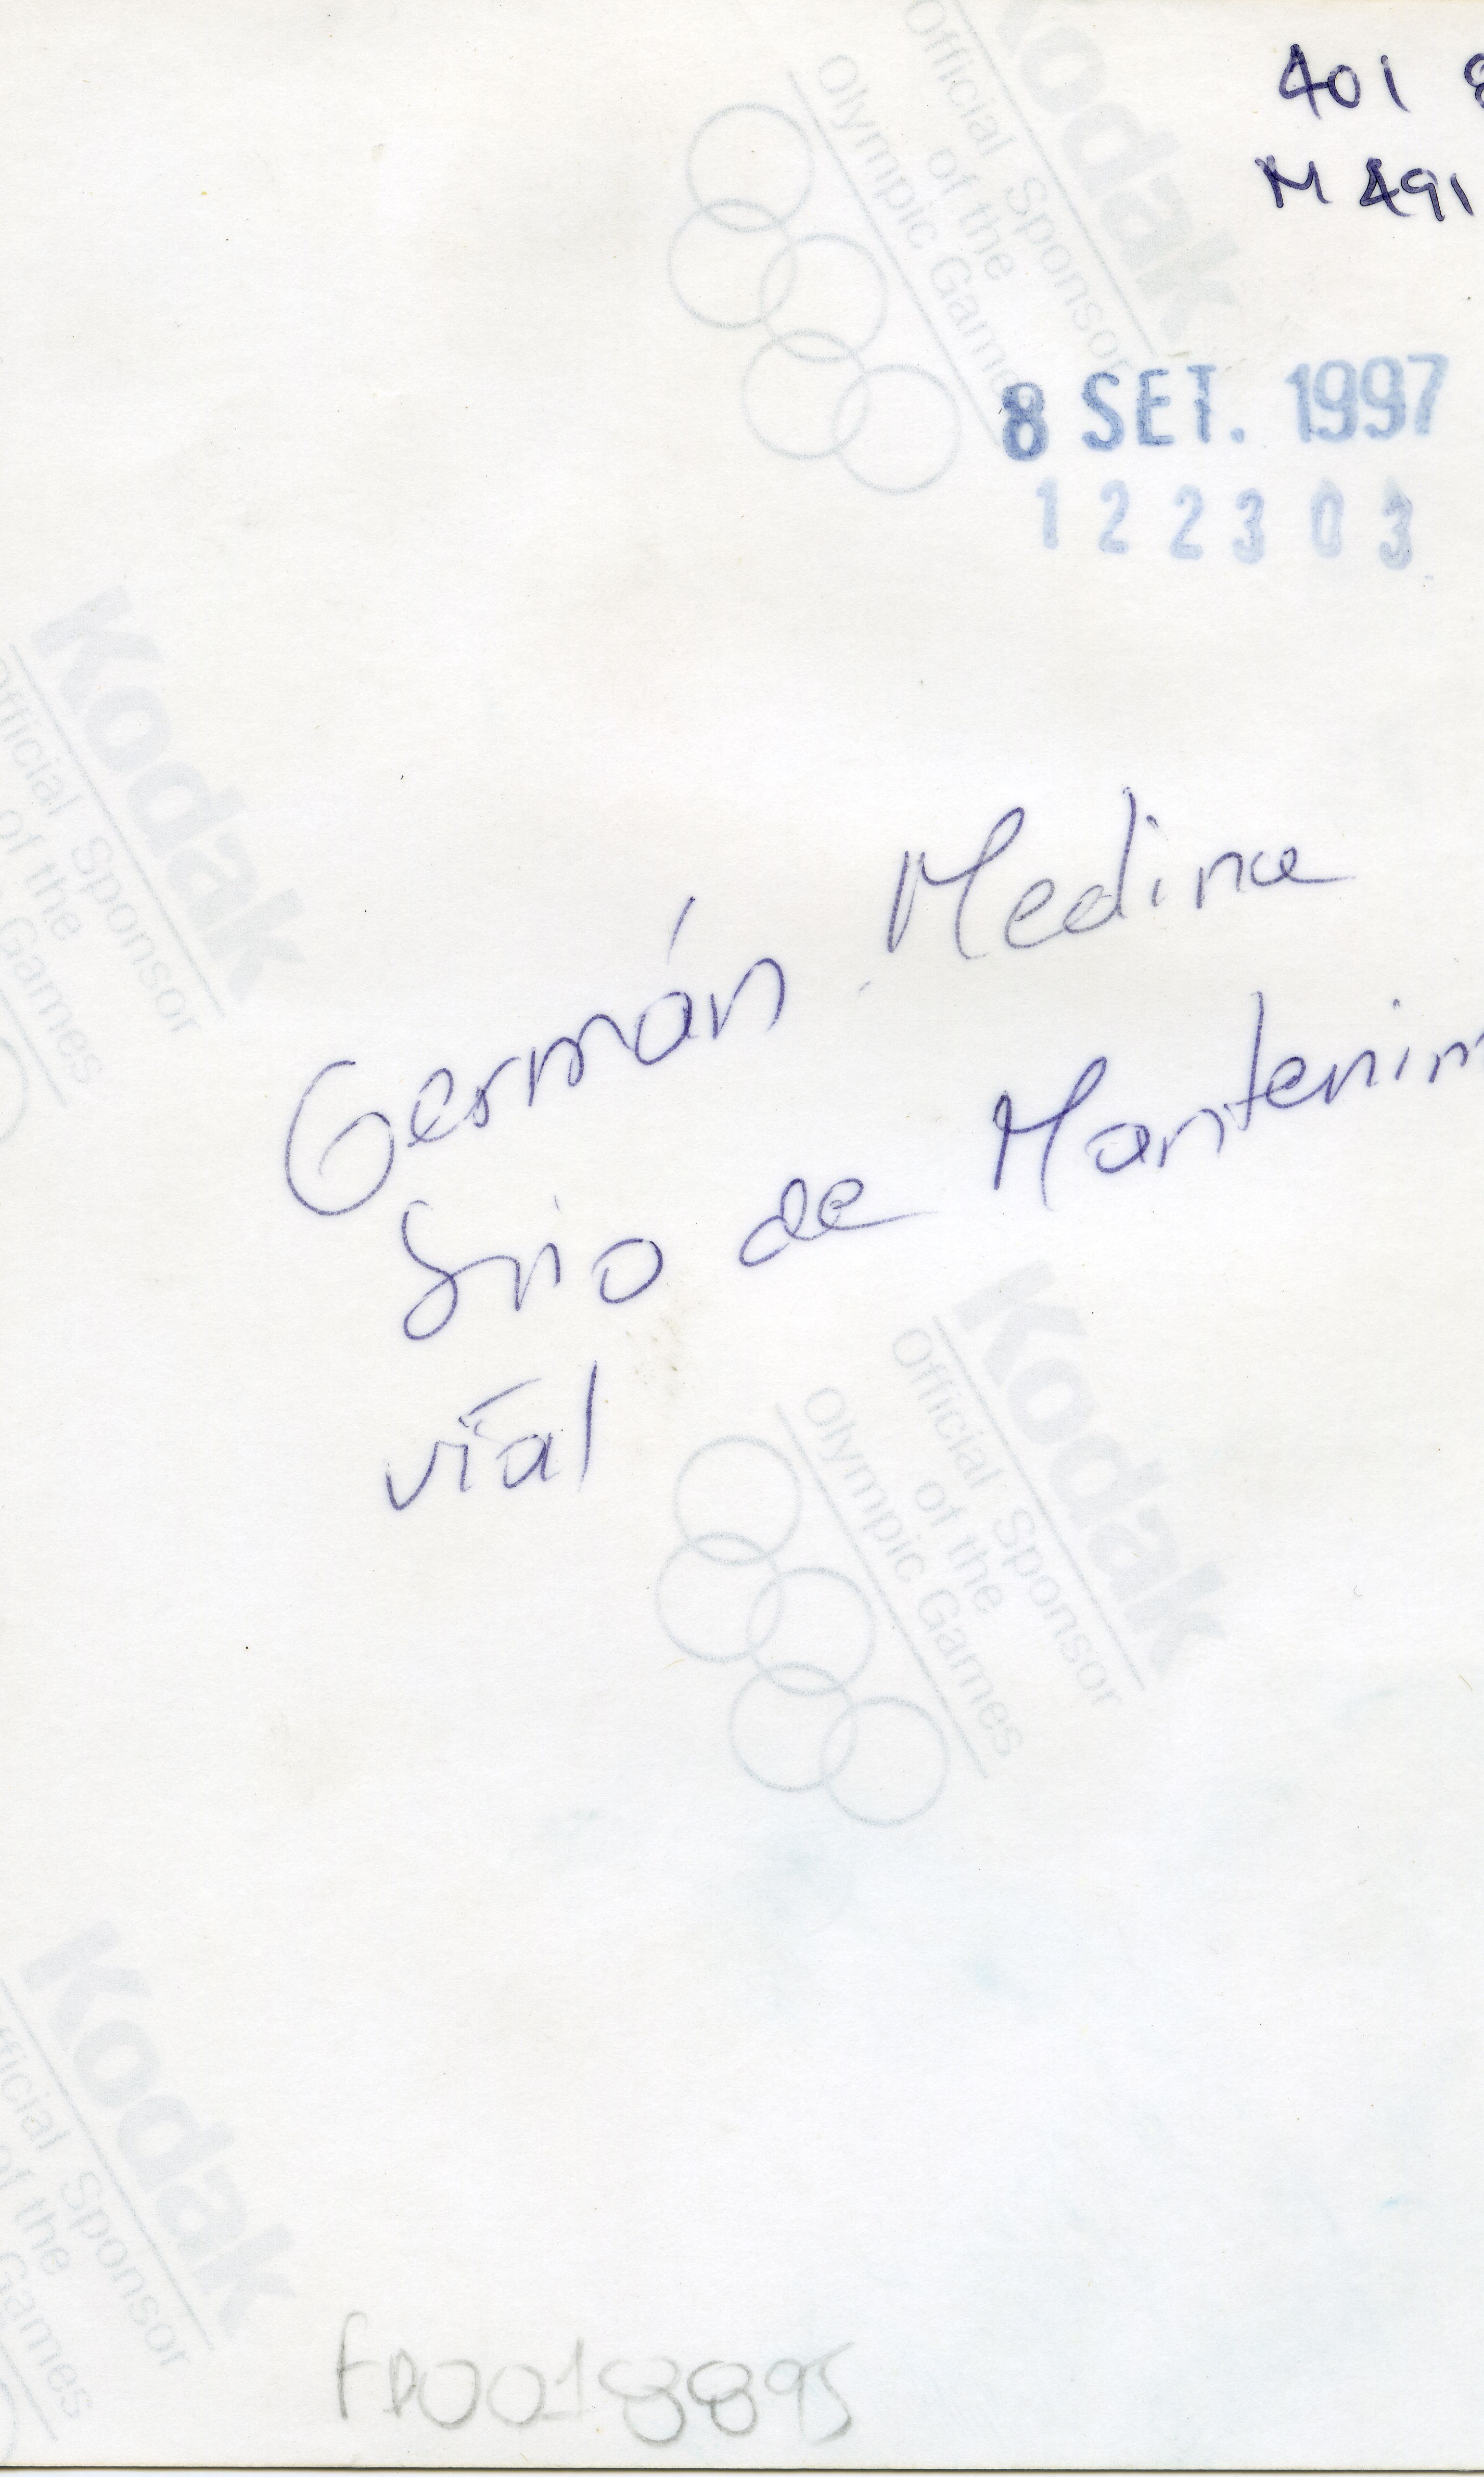 401 8
M 491
8 SET. 1997
122303
Germán Medina
Srio de Mantenim
vial
FD0018895
Kodak
Official Sponsor
of the
Olympic Games
Kodak
Official Sponsor
of the
Games
Kodak
Official Sponsor
of the
Olympic Games
Kodak
Official Sponsor
of the
Games